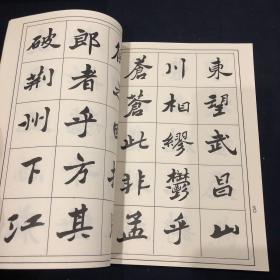 東望武昌山
川相繆鬱乎
蒼蒼此非孟
郎者乎方其
破荊州下江